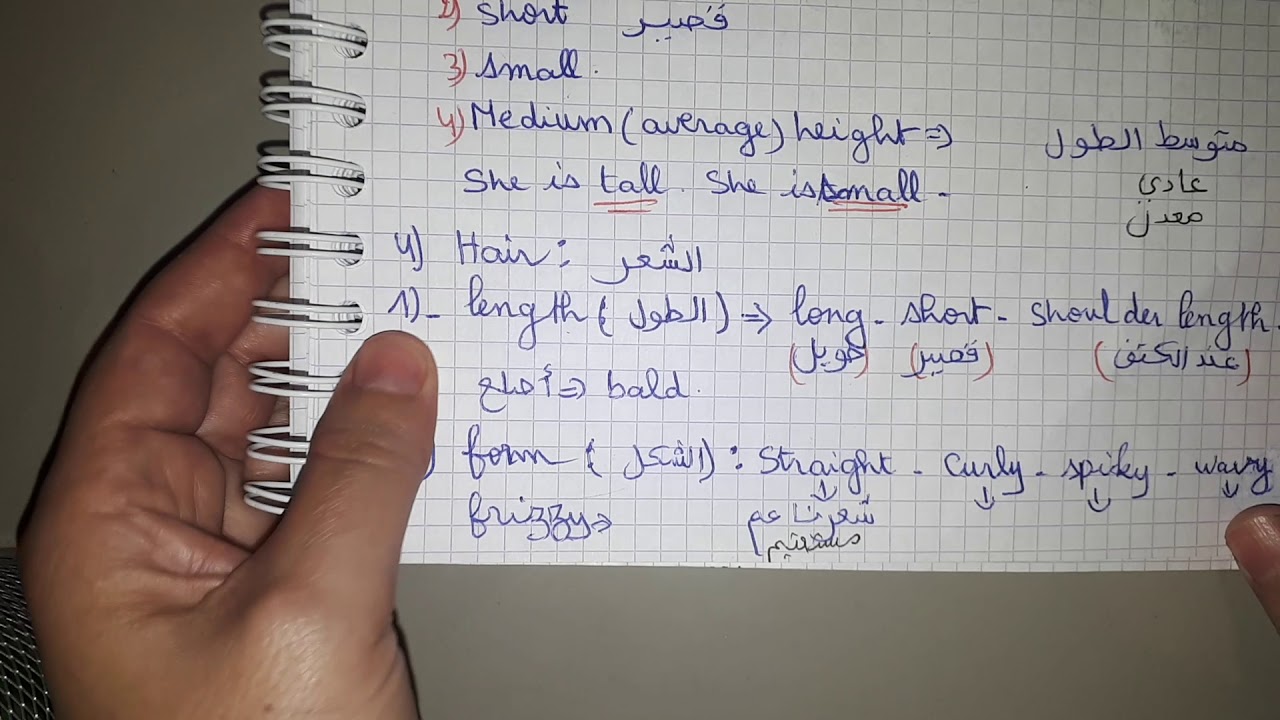 2) short قصير
3) small.
4) Medium (average) height => متوسط الطول
عادي
She is tall. She is small.
معدل
4) Hair: الشعر
1)- length (الطول) => long - short - shoulder length.
(طويل) (قصير) (عند الكتف)
أصلع => bald.
) form (الشكل): Straight - curly - spiky - wavy
frizzy => شعر ناعم
مستقيم